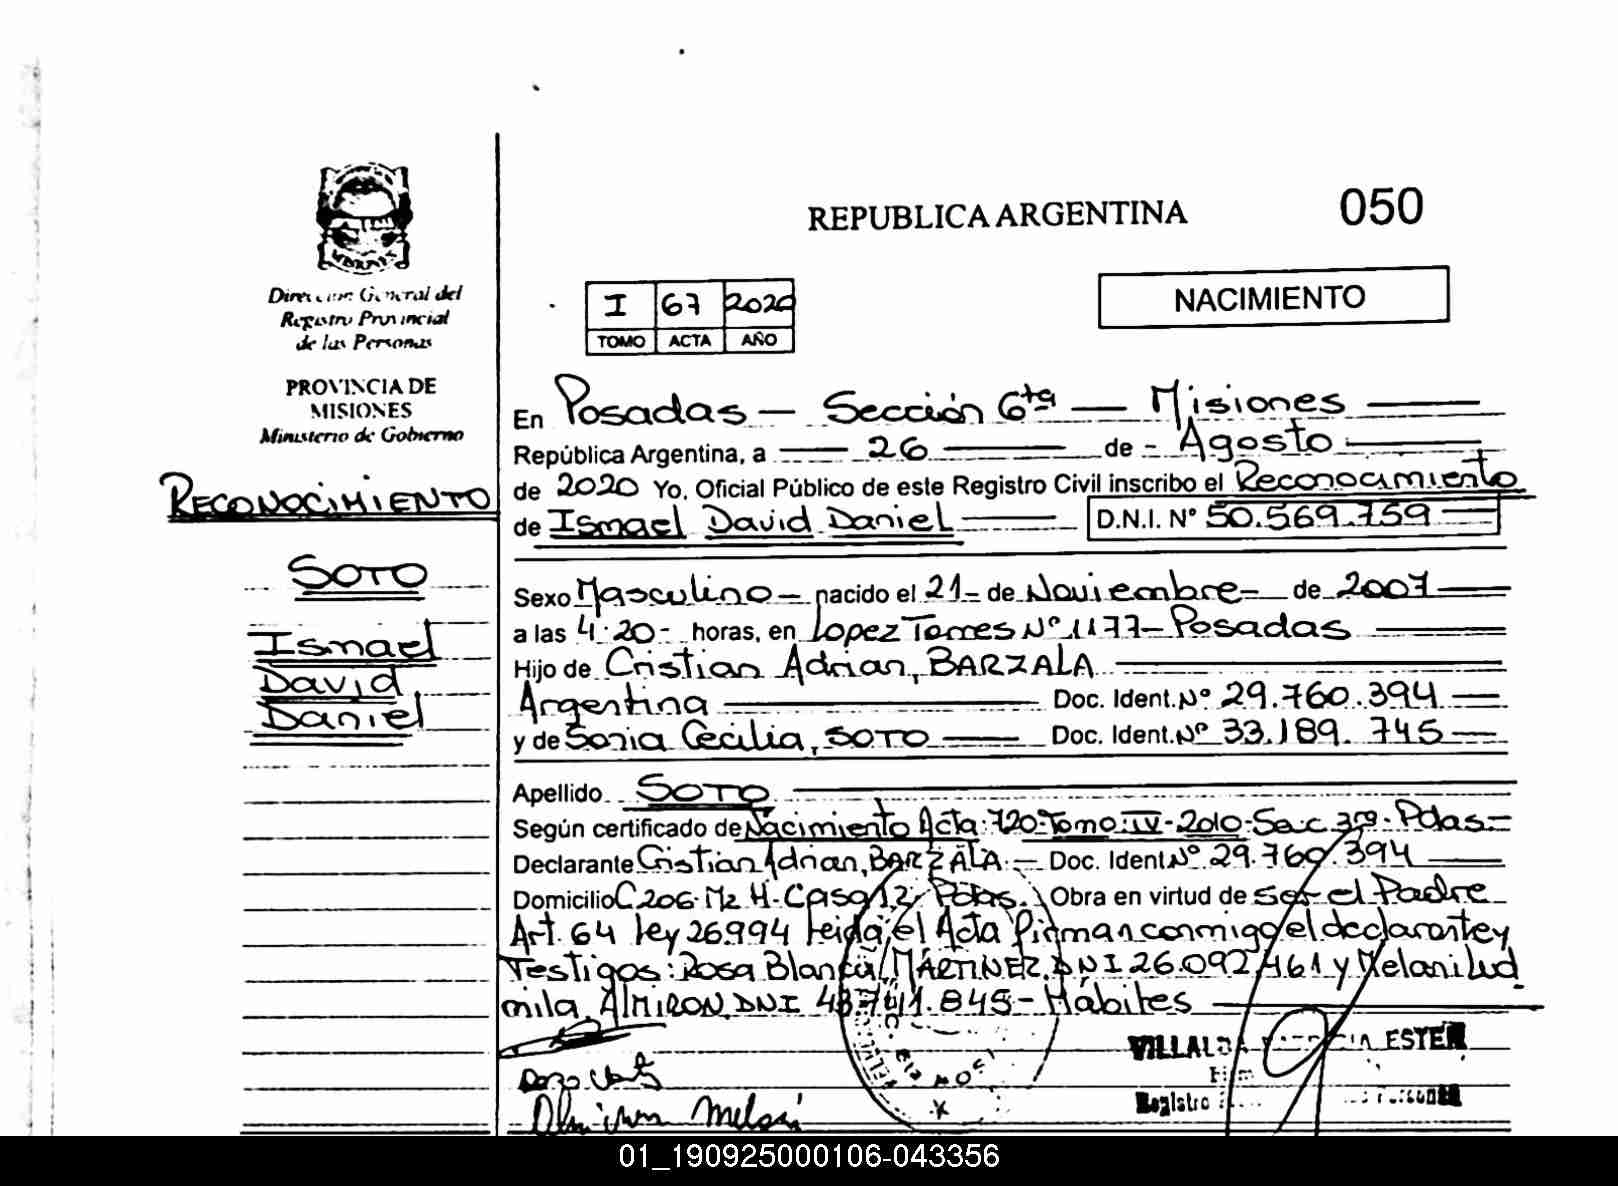 REPUBLICA ARGENTINA
050
Dirección General del
Registro Provincial
de las Personas
PROVINCIA DE
MISIONES
Ministerio de Gobierno
I 67 2020
TOMO ACTA AÑO
NACIMIENTO
RECONOCIMIENTO
SOTO
Ismael
David
Daniel
En Posadas - Sección 6ta - Misiones
República Argentina, a 26 de - Agosto
de 2020 Yo, Oficial Público de este Registro Civil inscribo el Reconocimiento
de Ismael David Daniel D.N.I. N° 50.569.759
Sexo Masculino - nacido el 21 - de Noviembre - de 2007
a las 4:20 - horas, en Lopez Torres N° 1177 - Posadas
Hijo de Cristian Adrian, BARZALA
Argentina Doc. Ident. N° 29.760.394
y de Sonia Cecilia, SOTO Doc. Ident. N° 33.189.745
Apellido SOTO
Según certificado de Nacimiento Acta: 720-Tomo: IV-2010-Sec. 3ra-Pdas -
Declarante Cristian Adrian, BARZALA - Doc. Ident N° 29.760.394
Domicilio C 206-Mz H-Casa 12-Pdas. Obra en virtud de ser el Padre
Art. 64 Ley 26.994 Leida el Acta firman conmigo el declarante y
Testigos: Rosa Blanca, MARTINEZ, DNI 26.092.461 y Melani Lud
mila, ALMIRON, DNI 43.741.845 - Hábiles
Almiron Melani
ESTER
Registro
01_190925000106-043356